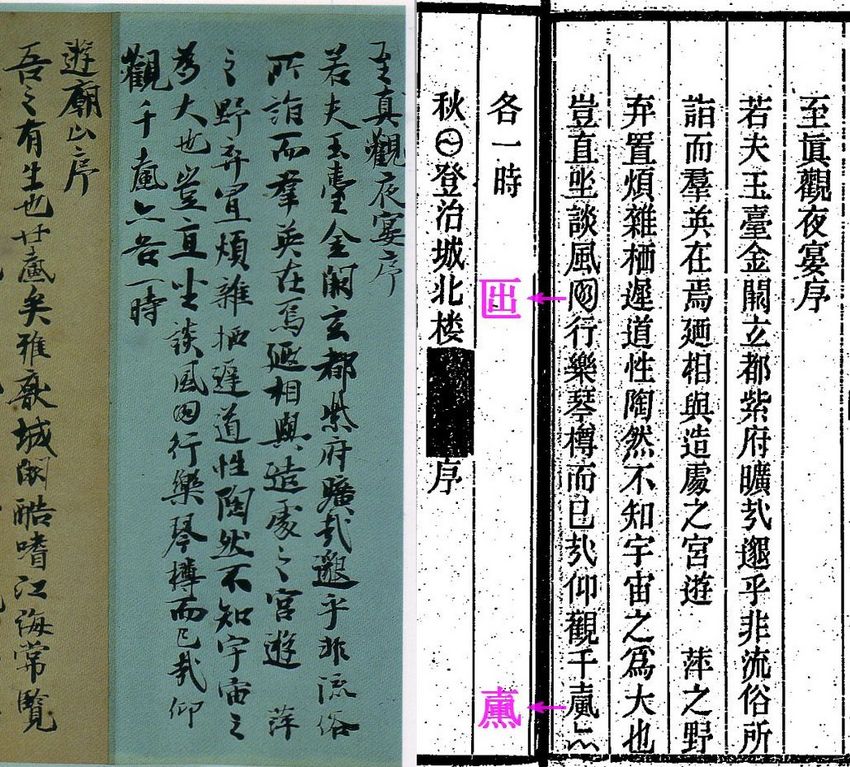 至眞觀夜宴序
若夫玉臺金闕玄都紫府曠㢤邈乎非流俗所
詣而羣英在焉廼相與造處之宮遊　萍之野
弃置煩雜栖遲道性陶然不知宇宙之爲大也
豈直坐談風行樂琴樽而已㢤仰觀千亦
𠥱
各一時
秋𡆠登治城北楼序
至真觀夜宴序
若夫玉臺金闕玄都紫府曠㢤邈乎非流俗
所詣而羣英在焉廼相與造處之宮遊　萍
之野弃置煩雜栖遲道性陶然不知宇宙之
為大也豈直坐談風行樂琴樽而已㢤仰
觀千亦各一時
遊廟山序
吾之有生也廿矣雅猒城闕酷嗜江海常覧